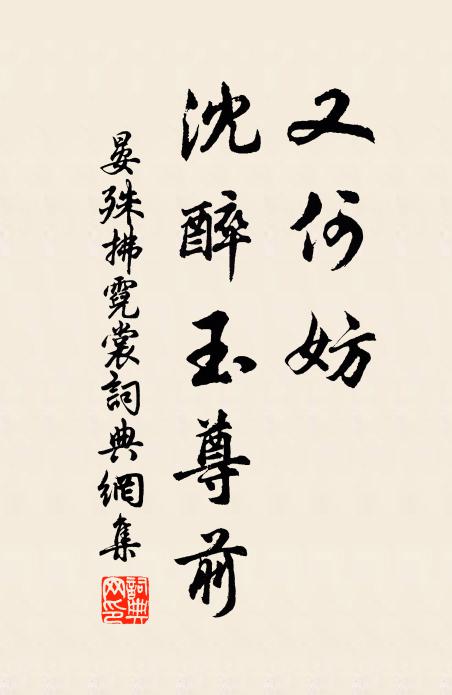 又何妨
沈醉玉尊前
晏殊拂霓裳詞典網集
詞典
网印